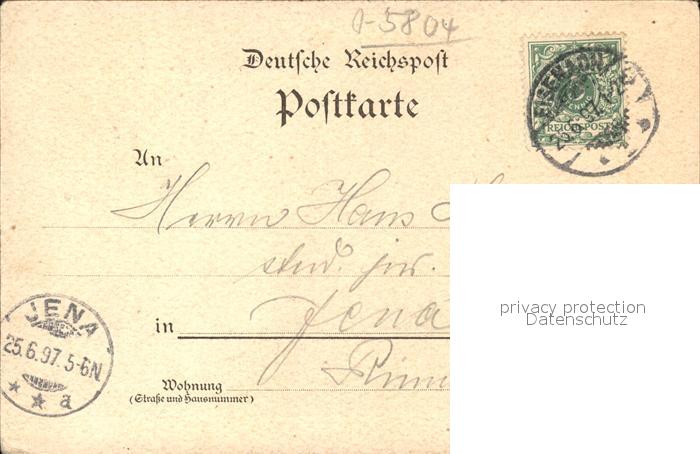 A-5804
Deutsche Reichspost
Postkarte
REICHSPOST
An
Herrn Hans
stud. jur.
privacy protection
Datenschutz
JENA
25.6.97.5-6N
a
in Jena
Wohnung
(Straße und Hausnummer)